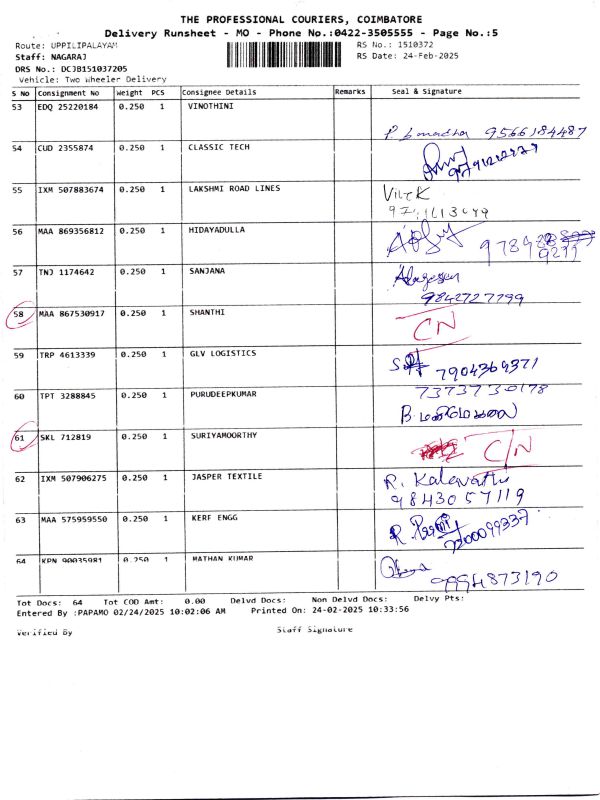 THE PROFESSIONAL COURIERS, COIMBATORE
Delivery Runsheet - MO - Phone No.:0422-3505555 - Page No.:5
Route: UPPILIPALAYAM
RS No.: 1510372
Staff: NAGARAJ
RS Date: 24-Feb-2025
DRS No.: DCJB151037205
Vehicle: Two Wheeler Delivery
S No Consignment No Weight PCS Consignee Details Remarks Seal & Signature
53 EDQ 25220184 0.250 1 VINOTHINI
9566184487
54 CUD 2355874 0.250 1 CLASSIC TECH
55 IXM 507883674 0.250 1 LAKSHMI ROAD LINES
56 MAA 869356812 0.250 1 HIDAYADULLA
57 TNJ 1174642 0.250 1 SANJANA
9842727799
58 MAA 867530917 0.250 1 SHANTHI
CN
59 TRP 4613339 0.250 1 GLV LOGISTICS
7904369371
60 TPT 3288845 0.250 1 PURUDEEPKUMAR
7373730178
61 SKL 712819 0.250 1 SURIYAMOORTHY
C/N
62 IXM 507906275 0.250 1 JASPER TEXTILE
R. Kalavathi
9843057119
63 MAA 575959550 0.250 1 KERF ENGG
64 KPN 90035981 0.250 1 MATHAN KUMAR
9994873190
Tot Docs: 64 Tot COD Amt: 0.00 Delvd Docs: Non Delvd Docs: Delvy Pts:
Entered By :PAPAMO 02/24/2025 10:02:06 AM Printed On: 24-02-2025 10:33:56
Verified By Staff Signature